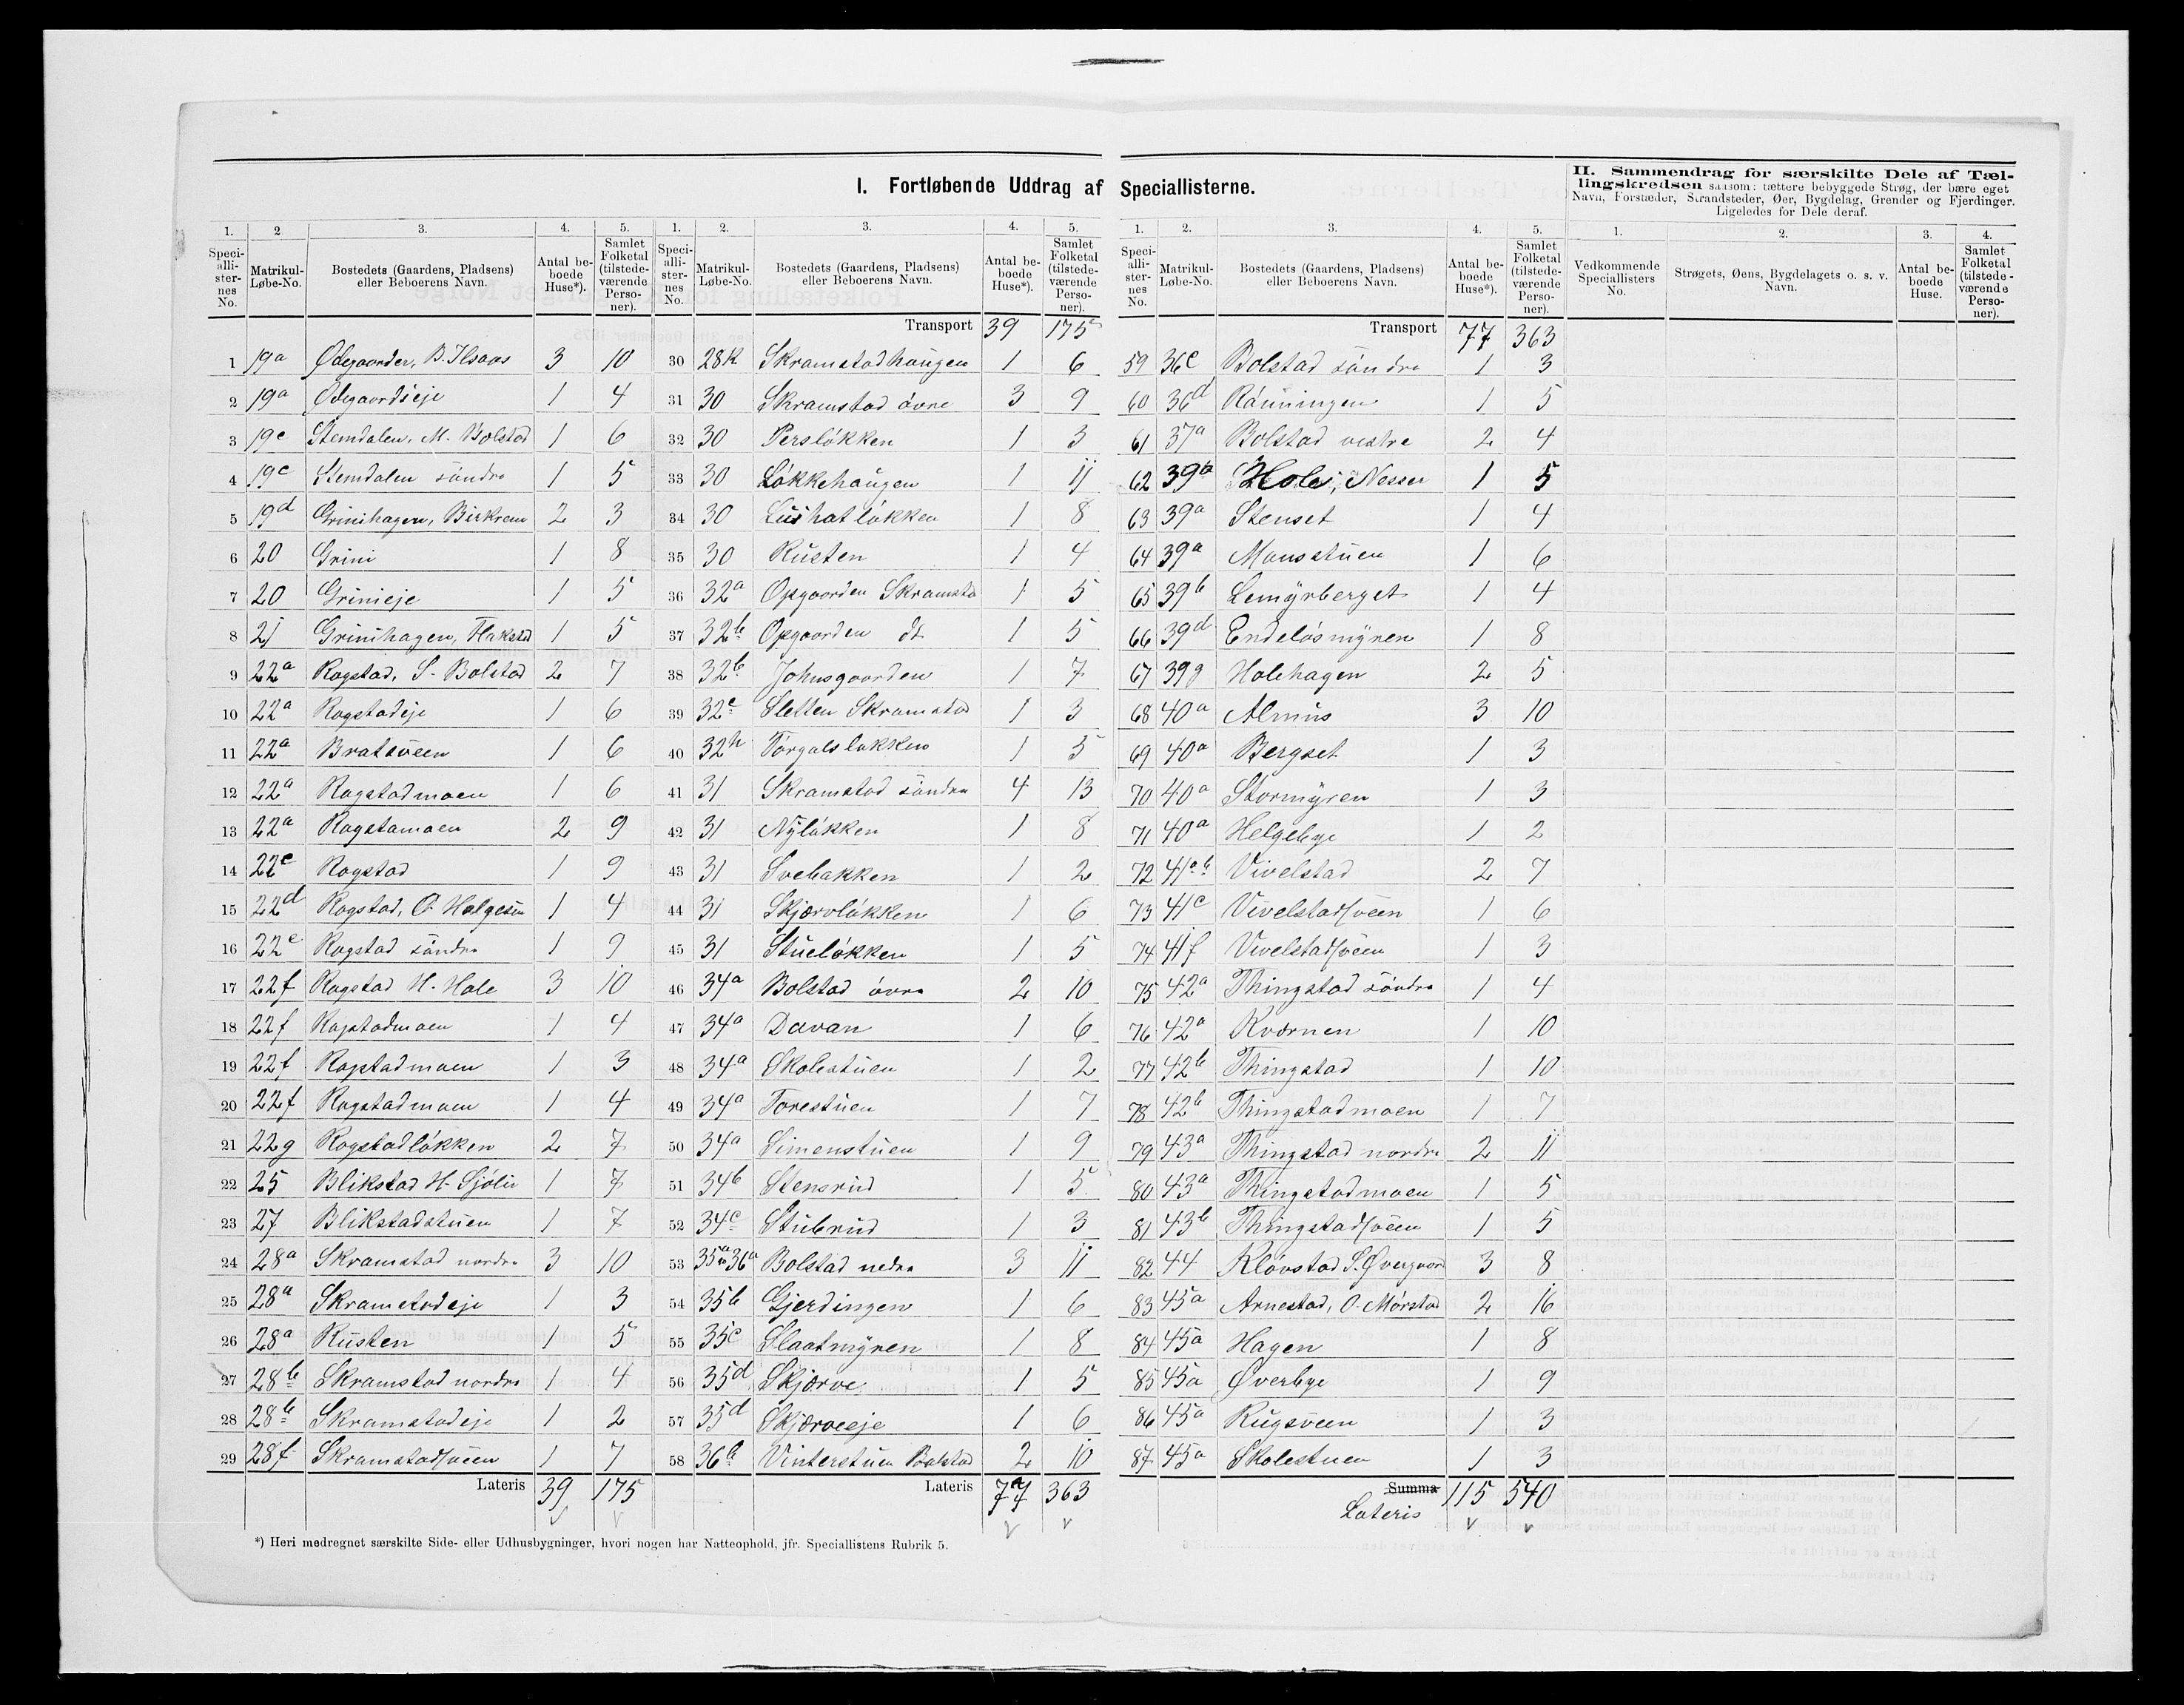 I. Fortløbende Uddrag af Speciallisterne.
II. Sammendrag for særskilte Dele af Tæl-
lingskredsen saasom: tættere bebyggede Strøg, der bære eget
Navn, Forstæder, Strandsteder, Øer, Bygdelag, Grender og Fjerdinger.
Ligeledes for Dele deraf.
1. 2 3. 4. 5.
Speci-alli-ster-nes No. Matrikul-Løbe-No. Bostedets (Gaardens, Pladsens) eller Beboerens Navn. Antal be-boede Huse*). Samlet Folketal (tilstede-værende Perso-ner).
1 19a Ødegaarden, B. Ilsaas 3 10
2 19a Ødegaardseje 1 4
3 19c Stemdalen, M. Bolstad 1 6
4 19c Stemdalen søndre 1 5
5 19d Grinihagen, Birkrem 2 3
6 20 Grini 1 8
7 20 Grinieje 1 5
8 21 Grinihagen, Flakstd 1 5
9 22a Rogstad, S. Bolstad 2 7
10 22a Rogstadeje 1 6
11 22a Bratsveen 1 6
12 22a Rogstadmoen 1 6
13 22a Rogstamoen 2 9
14 22c Rogstad 1 9
15 22d Rogstad, O. Helgesen 1 4
16 22e Rogstad søndre 1 9
17 22f Rogstad H. Hole 3 10
18 22f Rogstadmoen 1 4
19 22f Rogstadmoen 1 3
20 22f Rogstadmoen 1 4
21 22g Rogstadløkken 2 7
22 25 Blikstad H. Sjølie 1 7
23 27 Blikstadstuen 1 7
24 28a Skramstad nordre 3 10
25 28a Skramstadeje 1 3
26 28a Rusten 1 5
27 28b Skramstad nordre 1 4
28 28b Skramstadeje 1 2
29 28f Skramstadsveen 1 7
Lateris 39 175
1. 2. 3. 4. 5.
Speci-alli-ster-nes No. Matrikul-Løbe-No. Bostedets (Gaardens, Pladsens) eller Beboerens Navn. Antal be-boede Huse*). Samlet Folketal (tilstede-værende Perso-ner).
Transport 39 175
30 28k Skramstadhaugen 1 6
31 30 Skramstad øvre 3 9
32 30 Persløkken 1 3
33 30 Løkkehaugen 1 11
34 30 Lushatløkken 1 8
35 30 Rusten 1 4
36 32a Opgaarden Skramsta 1 5
37 32b Opgaarden dt 1 5
38 32b Johnsgaarden 1 7
39 32c Sletten Skramstad 1 3
40 32h Torgalsløkken 1 5
41 31 Skramstad søndre 4 13
42 31 Nyløkken 1 8
43 31 Svebakken 1 2
44 31 Skjærvløkken 1 6
45 31 Stueløkken 1 5
46 34a Bolstad øvre 2 10
47 34a Davan 1 6
48 34a Skolestuen 1 2
49 34a Torestuen 1 7
50 34a Simenstuen 1 9
51 34b Stensrud 1 5
52 34c Stubrud 1 3
53 35a 36a Bolstad nedre 3 11
54 35b Gjerdingen 1 6
55 35c Slaatmyren 1 8
56 35d Skjærve 1 5
57 35d Skjærveeje 1 6
58 36b Vinterstuen Bolstad 2 10
Lateris 77 363
1. 2. 3. 4. 5.
Speci-alli-ster-nes No. Matrikul-Løbe-No. Bostedets (Gaardens, Pladsens) eller Beboerens Navn. Antal be-boede Huse*). Samlet Folketal (tilstede-værende Perso-ner).
Transport 77 363
59 36c Bolstad søndre 1 3
60 36d Rønningen 1 5
61 37a Bolstad vestre 2 4
62 39a Hole, Nesser 1 5
63 39a Stenset 1 4
64 39a Monsstuen 1 6
65 39b Lemyrberget 1 4
66 39d Endeløsmyren 1 8
67 39g Holehagen 2 5
68 40a Almus 3 10
69 40a Bergset 1 3
70 40a Stormyren 1 3
71 40a Helgebye 1 2
72 41a.b Vivelstad 2 7
73 41c Vivelstadsveen 1 6
74 41f Vivelstadsveen 1 3
75 42a Thingstad søndre 1 4
76 42a Kværnen 1 10
77 42b Thingstad 1 10
78 42b Thingstadmoen 1 7
79 43a Thingstad nordre 2 11
80 43a Thingstadmoen 1 5
81 43b Thingstadsveen 1 5
82 44 Kløvstad S. Øvergaard 3 8
83 45a Arnestad, O. Mørstad 2 16
84 45a Hagen 1 8
85 45a Øverbye 1 9
86 45a Rugsveen 1 3
87 45a Skolestuen 1 3
Summa 115 540
Lateris
1. 2. 3. 4.
Vedkommende Speciallisters No. Strøgets, Øens, Bygdelagets o. s. v. Navn. Antal be-boede Huse. Samlet Folketal (tilstede-værende Perso-ner).
*) Heri medregnet særskilte Side- eller Udhusbygninger, hvori nogen har Natteophold, jfr. Speciallistens Rubrik 5.